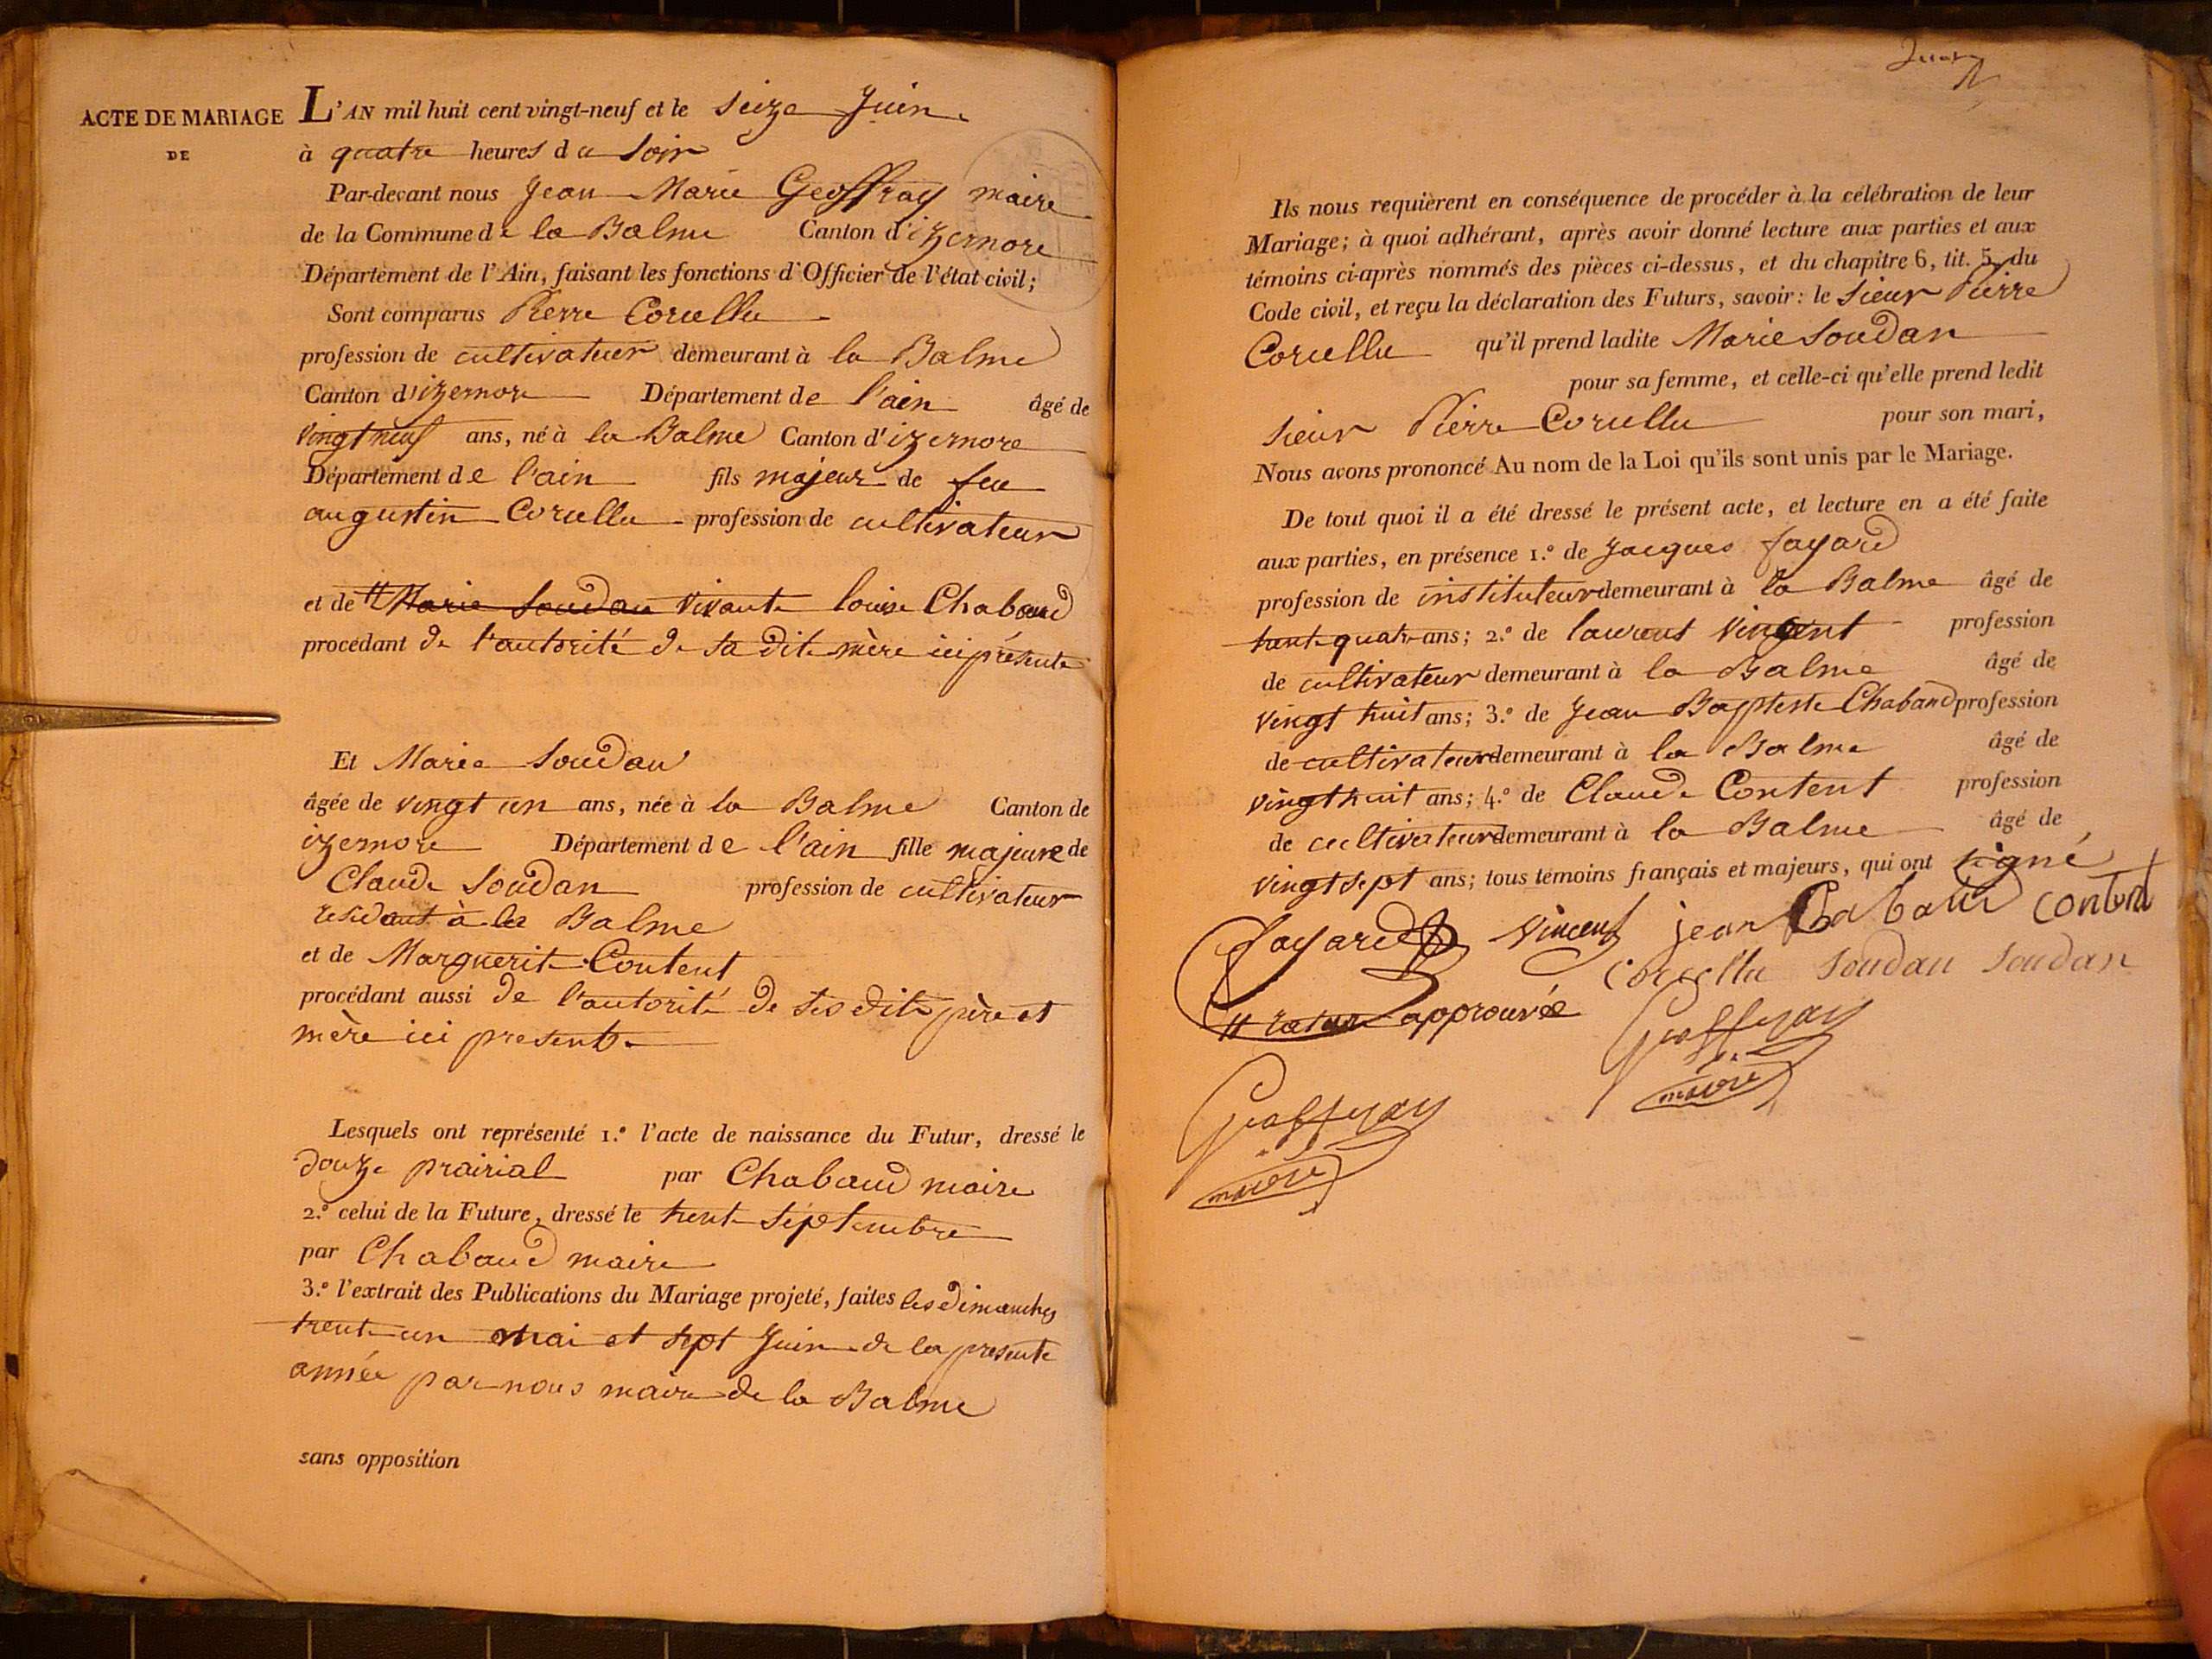 ACTE DE MARIAGE
DE
L'AN mil huit cent vingt-neuf et le seize Juin
à quatre heures du soir
Par-devant nous Jean Marie Geoffray maire
de la Commune de la Balme Canton d'izernore
Département de l'Ain, faisant les fonctions d'Officier de l'état civil;
Sont comparus Pierre Corcellu
profession de cultivateur demeurant à la Balme
Canton d'izernore Département de l'ain âgé de
vingt neuf ans, né à la Balme Canton d'izernore
Département de l'ain fils majeur de feu
augustin Corcellu profession de cultivateur
et de # Marie Soudan vivante louise Chabaud
procédant de l'autorité de sa dite mère ici présente
Et Marie Soudan
âgée de vingt un ans, née à la Balme Canton de
izernore Département de l'ain fille majeure de
Claude Soudan profession de cultivateur
residant à la Balme
et de Marguerite Content
procédant aussi de l'autorité de ses dits père et
mère ici presents
Lesquels ont représenté 1.º l'acte de naissance du Futur, dressé le
douze prairial par Chabaud maire
2.º celui de la Future, dressé le trente septembre
par Chabaud maire
3.º l'extrait des Publications du Mariage projeté, faites les dimanches
trente un mai et sept Juin de la presente
année par nous maire de la Balme
sans opposition
Ils nous requièrent en conséquence de procéder à la célébration de leur
Mariage; à quoi adhérant, après avoir donné lecture aux parties et aux
témoins ci-après nommés des pièces ci-dessus, et du chapitre 6, tit. 5, du
Code civil, et reçu la déclaration des Futurs, savoir: le sieur Pierre
Corcellu qu'il prend ladite Marie Soudan
pour sa femme, et celle-ci qu'elle prend ledit
sieur Pierre Corcellu pour son mari,
Nous avons prononcé Au nom de la Loi qu'ils sont unis par le Mariage.
De tout quoi il a été dressé le présent acte, et lecture en a été faite
aux parties, en présence 1.º de Jacques fayard
profession de instituteur demeurant à la Balme âgé de
trente quatre ans; 2.º de laurent Vincent profession
de cultivateur demeurant à la Balme âgé de
vingt huit ans; 3.º de Jean Baptiste Chabaud profession
de cultivateur demeurant à la Balme âgé de
vingt huit ans; 4.º de Claude Content profession
de cultivateur demeurant à la Balme âgé de
vingt sept ans; tous témoins français et majeurs, qui ont signé
fayard Vincent jean Chabaud Content
Corcellu Soudan Soudan
# rature approuvée Geoffray
maire
Geoffray
maire